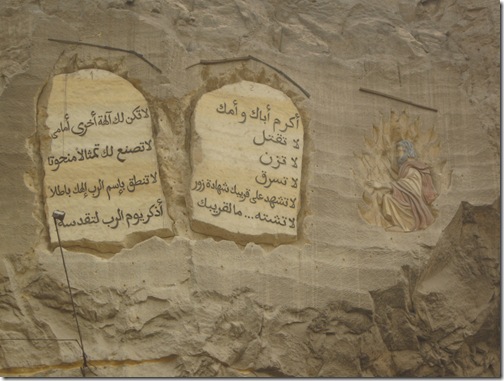 لا تكن لك آلهة أخرى أمامي
لا تصنع لك تمثالاً منحوتا
لا تنطق بإسم الرب إلهك باطلاً
أذكر يوم الرب لتقدسه
أكرم أباك و أمك
لا تقتل
لا تزن
لا تسرق
لا تشهد على قريبك شهادة زور
لا تشته... ما لقريبك